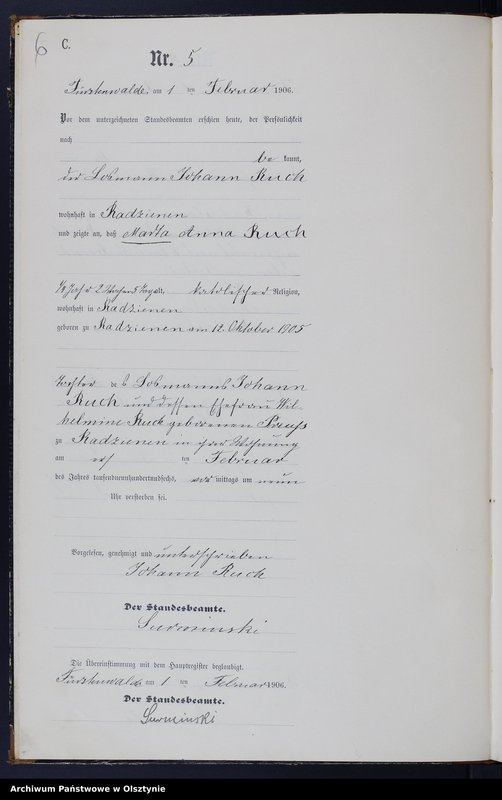 6
C.
Nr. 5
Fürstenwalde, am 1 ten Februar 1906.
Vor dem unterzeichneten Standesbeamten erschien heute, der Persönlichkeit
nach
be kannt,
der Losmann Johann Ruch
wohnhaft in Radzienen
und zeigte an, daß Marta Anna Ruch
1/4 Jahr 2 Wochen 5 Tage alt, katolischer Religion,
wohnhaft in Radzienen
geboren zu Radzienen am 12. Oktober 1905
Tochter des Losmanns Johann
Ruch und dessen Ehefrau Wil-
helmine Ruch geborenen Preuß
zu Radzienen in ihrer Wohnung
am ten Februar
des Jahres tausendneunhundertundsechs, vor mittags um neun
Uhr verstorben sei.
Vorgelesen, genehmigt und unterschrieben
Johann Ruch
Der Standesbeamte.
Surminski
Die Übereinstimmung mit dem Hauptregister beglaubigt.
Fürstenwalde am 1 ten Februar 1906.
Der Standesbeamte.
Surminski
Archiwum Państwowe w Olsztynie